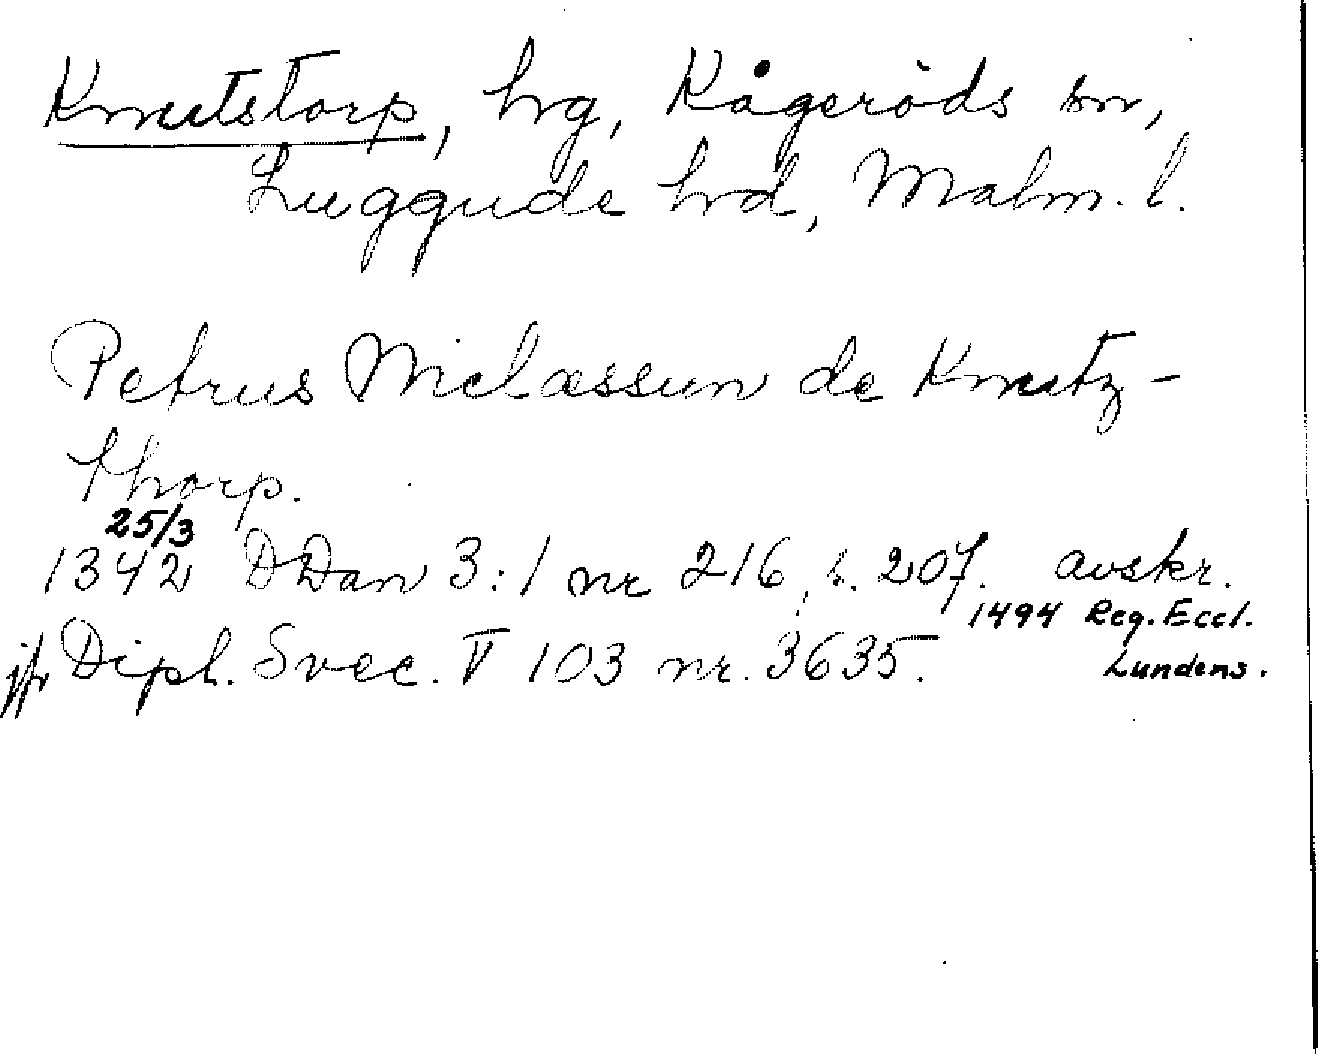 Knutstorp, hrg, Kågeröds sn,
Luggude hrd, Malm. l.
Petrus Niclæssun de Knutz-
thorp.
25/3
1342 DDan 3:1 nr 216, s. 207. avskr.
1494 Reg. Eccl.
jfr Dipl. Svec. V 103 nr. 3635.
Lundens.